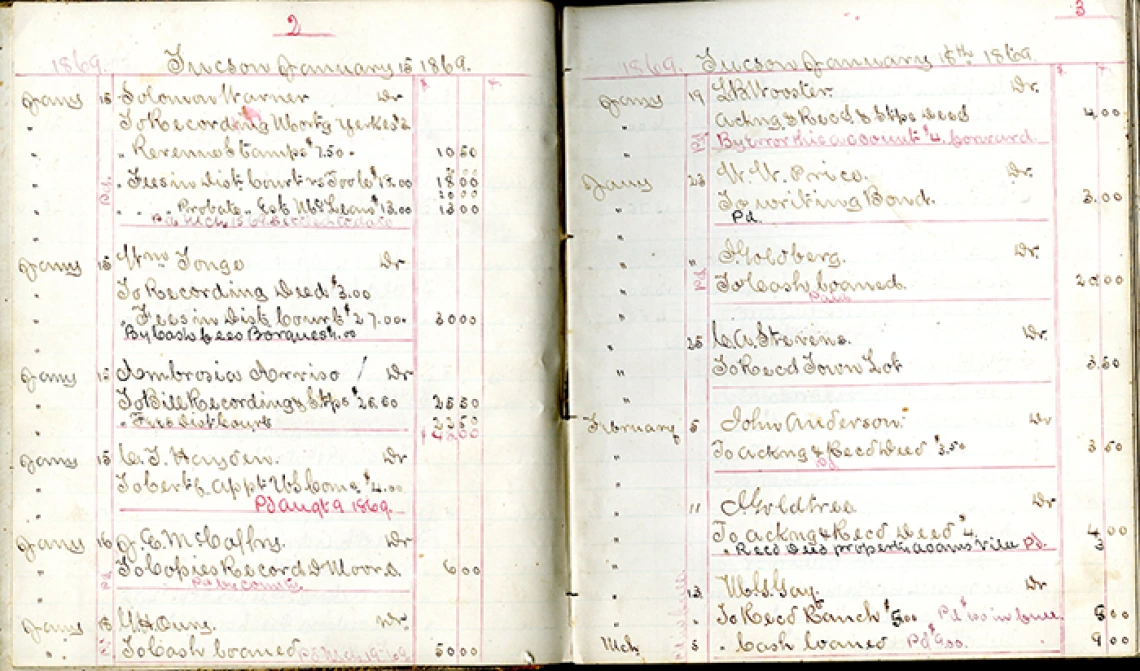 2
1869. Tucson January 15 1869.
Jany 15 Solomon Warner Dr
" To Recording Mortg
" " Revenue Stamps $7.50 10 50
" Pd. " Fees in Dist Court vs Toole $18.00 18 00
" " " Probate " Est McLeans $13.00 13 00
Jany 15 Wm Tonge Dr
" To Recording Deed $3.00
" " Fees in Dist Court $27.00 30 00
" By Cash
Jany 15 Ambrosia Arriso Dr
" To Bill Recording & Stps $25.50 25 50
" " Fees Dist Court 22 50
Jany 15 C. T. Hayden. Dr
" To Cert & Appt U S Com $4.00
" Pd Augt 9 1869.
Jany 16 J. E. McCaffry Dr
" To Copies Record D Moore. 6 00
" Pd by County
Jany 18 G H Oury. Dr
" To Cash loaned 50 00
3
1869. Tucson January 18th 1869.
Jany 19 L B Wooster. Dr.
" Ackng & Recd & Stps Deed 4.00
" Pd By Error this account $4. forward.
Jany 23 W. W. Price. Dr.
" To writing Bond. 3.00
" Pd.
" " I Goldberg. Dr.
" Pd. To Cash loaned. 20 00
" Paid
" 25 C. A. Stevens. Dr.
" To Recd Town Lot 3.50
"
February 5 John Anderson. Dr
" To Ackng & Recd Deed $3.50 3 50
" Pd
" 11 I Goldtree Dr
" To Ackng & Recd Deed $4. 4.00
" " Recd Deed property Adams Pd. 3
" 13 M. G. Gay. Dr
" To Recd Ranch 8 00
Mch 5 " Cash loaned Pd 9.00. 9 00